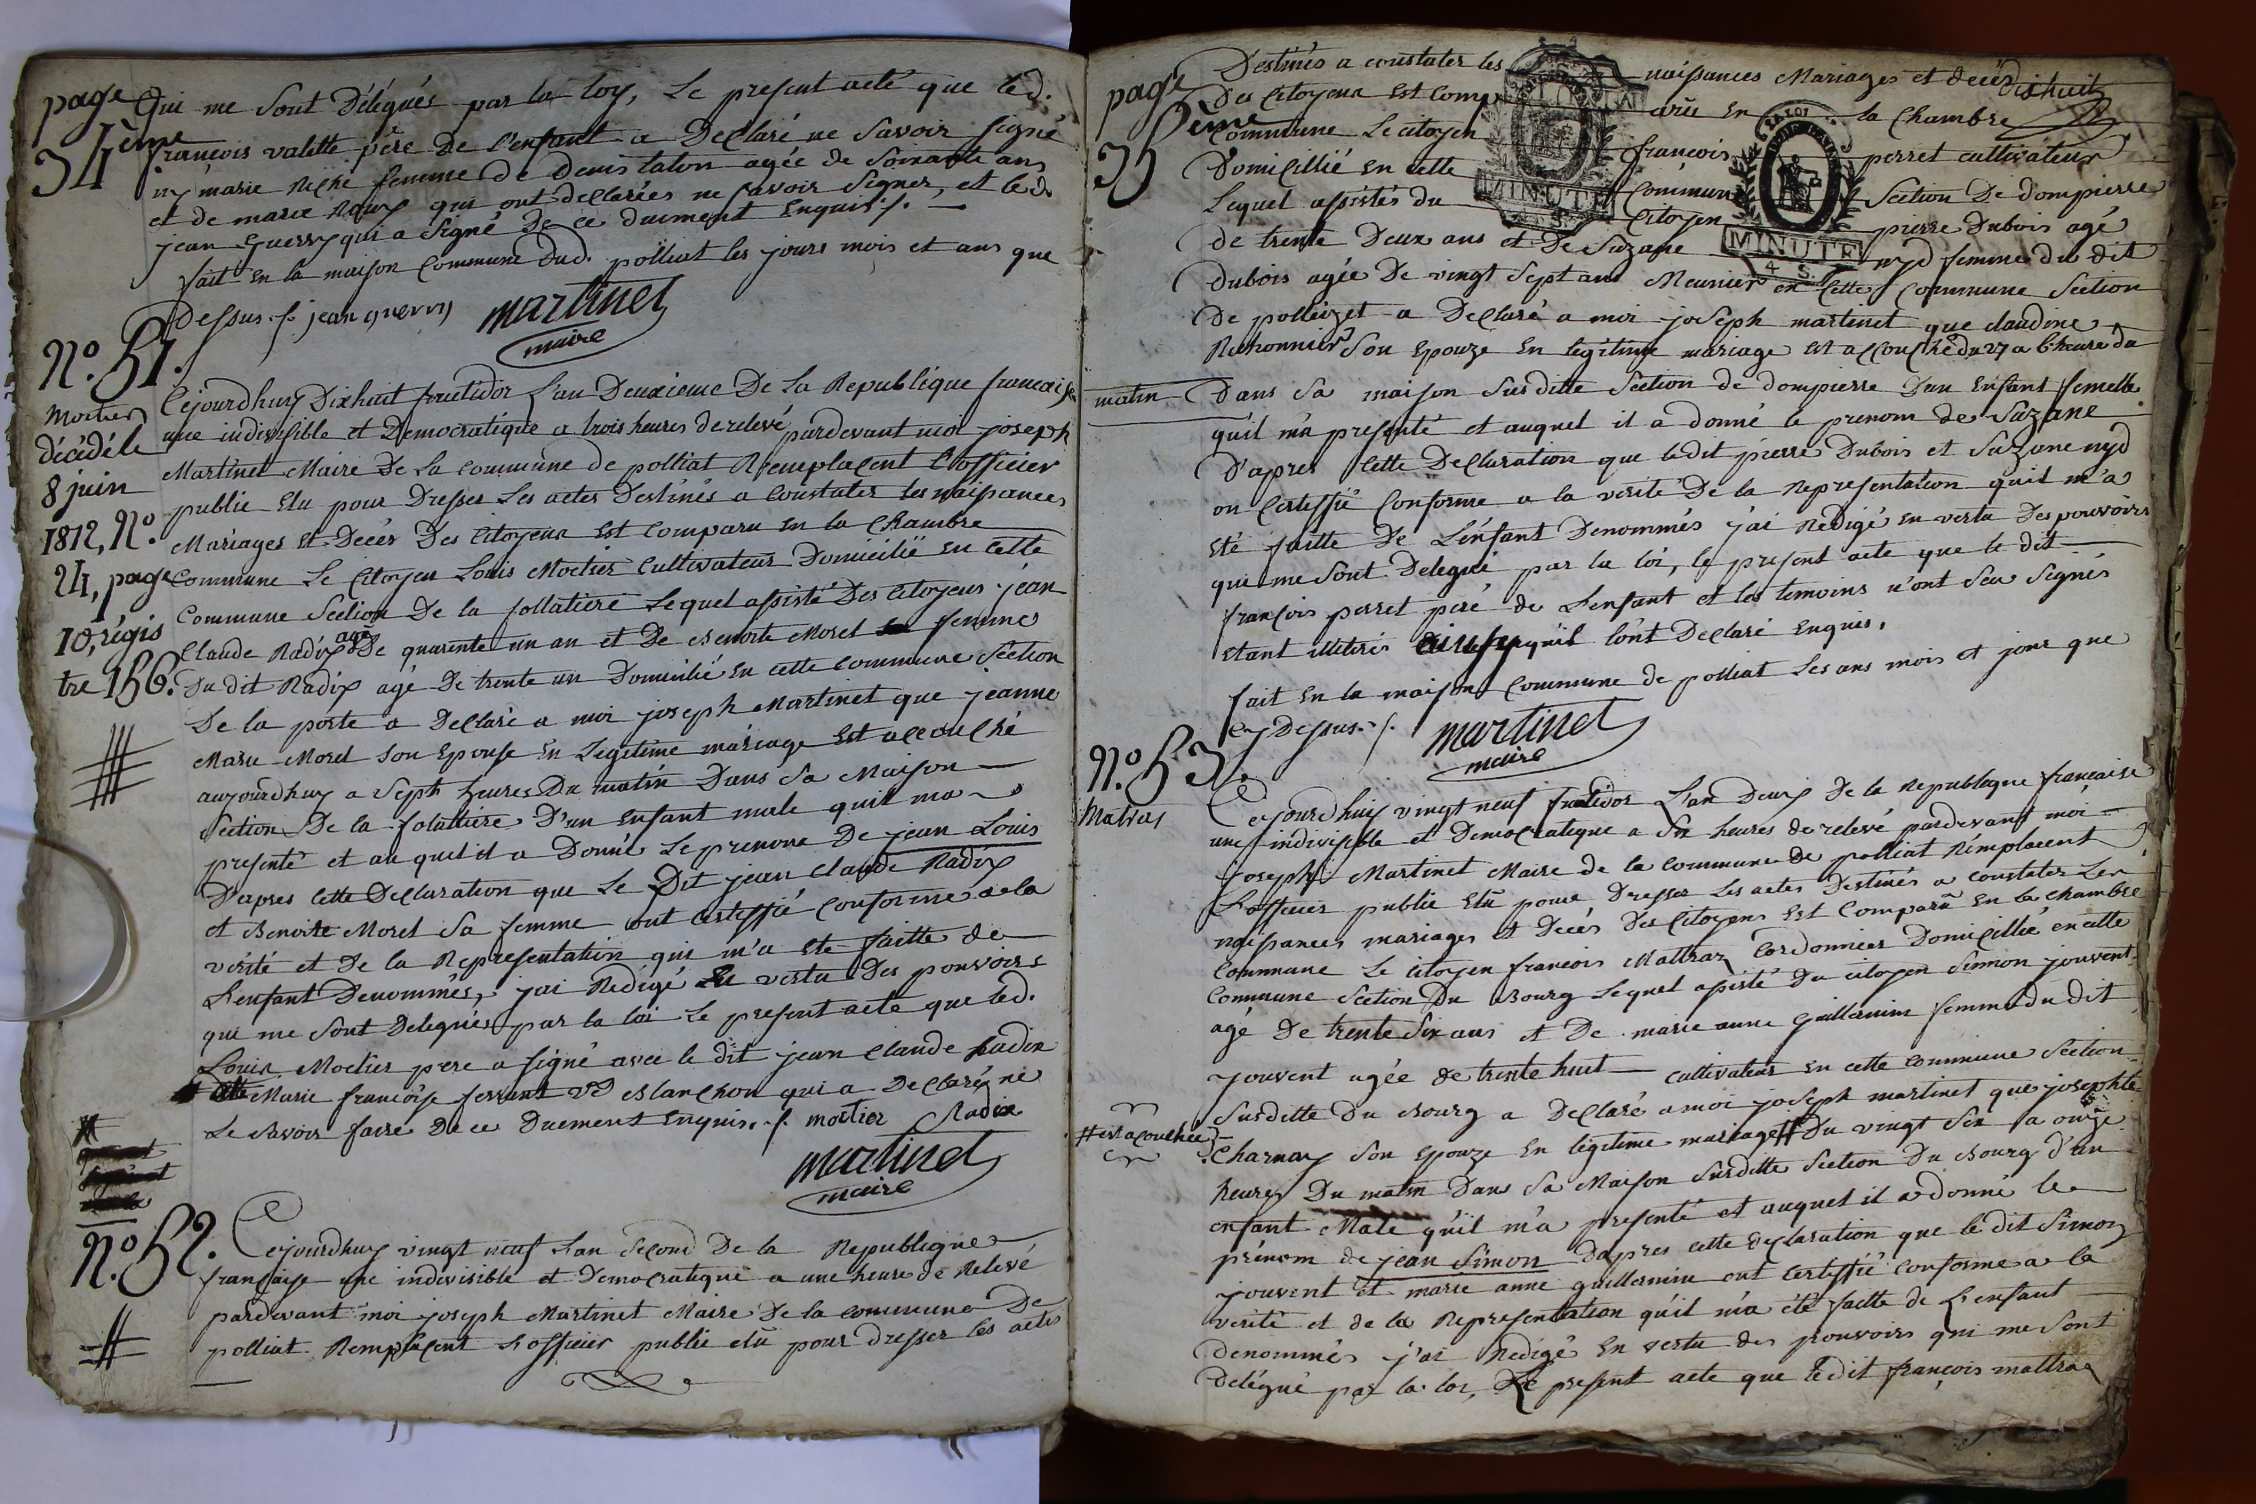 page 34ème
Qui me sont Délegués par la loy, Le present acte que led.
françois valette père De L'enfant a Declaré ne savoir signé
ny marie Riche femme De Denis talon agée de soixante ans
et de marie Roux qui ont declarées ne savoir signer, et led.
jean Guerry qui a signé De ce duement enquis./.
fait En la maison Commune dud. polliat les jours mois et ans que
Dessus ./. jean guerry
martinet
maire
N.o 51.
Mortier
décédé le
8 juin
1812, N.o
24, page
10, régis
tre 156.
Cejourdhuy Dixhuit fructidor L'an Deuxieme De La Republique francaise
une indivisible et Democratique a trois heures de relevé pardevant moi joseph
Martinet Maire De la Commune de polliat Remplacent L'officier
public Elu pour Dresser Les actes Destinés a Constater les naissances
Mariages et Decés Des Citoyens Est Comparu En la Chambre
Commune Le Citoyen Louis Mortier Cultivateur Domicilié En Cette
Commune Section De la follatiere Lequel assisté Des Citoyens jean
Claude Radix agé De quarente un an et De Benoite Morel femme
Du dit Radix agé De trente un Domicilié En cette Commune Section
De la poste a Declaré a moi joseph Martinet que jeanne
Marie Morel son Epouse En Legitime mariage Est accouché
aujourdhuy a Sept heures Du matin Dans Sa Maison
Section De la folattiere D'un Enfant male quil ma
presenté et au quel il a Donné Le prenom De jean Louis
D'apres Cette Declaration que Le Dit jean Claude Radix
et Benoite Morel Sa femme ont Certiffié Conforme a la
verité et De la Representation qui m'a Eté faitte de
L'enfant Denommés, jai Redigé En vertu Des pouvoirs
qui me sont Delegués par la loi Le present acte que led.
Louis Mortier pere a signé avec le dit jean Claude Radix
Marie françoise ferrant vd Blanchon qui a Declaré ne
Le Savoir faire De ce Duement Enquis ./. mortier Radix
martinet
maire
N.o 52.
Cejourdhuy vingt neuf L'an Second De la Republique
française une indivisible et Democratique a une heure de Relevé
pardevant moi joseph Martinet Maire De la Commune De
polliat Remplaçent L'officier public elu pour dresser les actes
page 35ème
dixhuit
Destinés a constater les naissances Mariages et decés
Des Citoyens Est Comparu En la Chambre
Commune Le Citoyen françois perret cultivateur
Domicillié En cette Commune Section De Dompierre
Lequel assistés du Citoyen pierre Dubois agé
de trente Deux ans et De Suzane nyd femme du dit
dubois agée De vingt Sept ans Meunier en Cette Commune Section
De polleizet a Declaré a moi joseph martinet que claudine
Rehonnier Son Epouze En legitime mariage Est accouchée du 27 a 6 heure du
matin Dans Sa maison Susditte Section de dompierre D'un Enfant femelle
quil m'a presenté et auquel il a donné le prenom de Suzane
D'apres Cette Declaration que ledit pierre Dubois et Suzane nyd
on Certiffié Conforme a la verité De la Representation quil m'a
Eté faitte De L'enfant Denommés j'ai Redigé En vertu Des pouvoirs
qui me Sont Delegué par la loi, le present acte que le dit
françois perret peré de L'enfant et les temoins n'ont Seu Signés
Etant illiterés ainsy quil l'ont Declaré Enquis.
fait En la maison Commune de polliat Les ans mois et jour que
Cy Dessus ./.
martinet
maire
N.o 53.
Matras
Cejourdhuy vingt neuf fructidor L'an Deux De la Republique française
une indivisible et Democratique a Six heures de relevé pardevant moi
joseph Martinet Maire de la Commune De polliat Remplacent
L'officier public Elu pour Dresser Les actes Destinés a constater Les
naissances mariages et Decés Des Citoyens Est Comparu En la Chambre
Commune Le Citoyen francois Mattras Cordonnier Domicillié en cette
Commune Section Du Bourg Lequel assisté Du citoyen Simon jouvent
agé De trente Six ans et De marie anne guillermin femme du dit
jouvent agée de trente huit cultivateur En cette Commune Section
Susditte Du Bourg a Declaré a moi joseph martinet que josephte
# est acouchée
Charnay Son Epouze En legitime mariage # Du vingt Six a onze
heures Du matin Dans Sa Maison Susditte Section Du Bourg d'un
enfant Male qu'il m'a presenté et auquel il a donné le
prénom de jean Simon Dapres cette declaration que le dit Simon
jouvent et marie anne guillermin ont Certiffié Conforme a la
verité et de la Representation qu'il m'a été faitte de L'enfant
denommés j'ai Redigé En vertu des pouvoirs qui me Sont
délégué par la loi, Le present acte que le dit françois mattras
LA LOI
MINUTE
MINUTE
4 S.